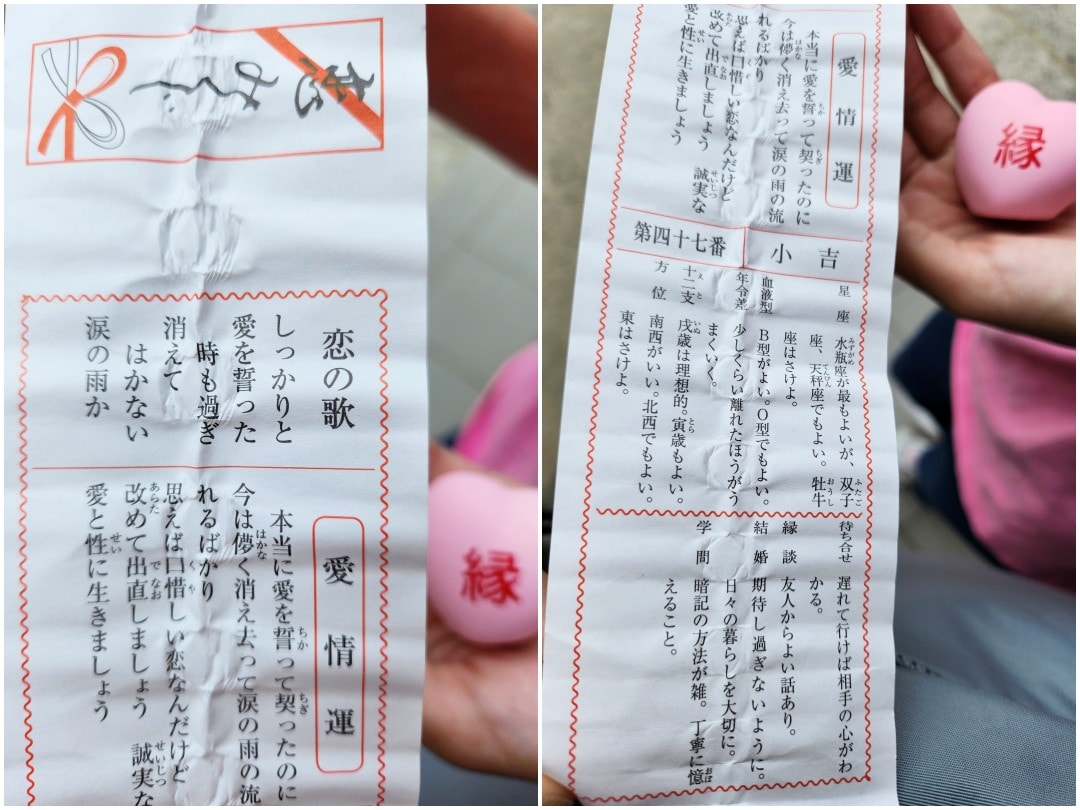 恋みくじ
恋の歌
しっかりと
愛を誓った
時も過ぎ
消えて
はかない
涙の雨か
愛情運
ちか ちぎ
本当に愛を誓って契ったのに
はかな
今は儚く消え去って涙の雨の流
れるばかり
くや
思えば口惜しい恋なんだけど
あらた でなお せいじつ
改めて出直しましょう 誠実な
せい
愛と性に生きましょう
縁
愛情運
ちか ちぎ
本当に愛を誓って契ったのに
はかな
今は儚く消え去って涙の雨の流
れるばかり
くや
思えば口惜しい恋なんだけど
あらた でなお せいじつ
改めて出直しましょう 誠実な
せい
愛と性に生きましょう
小吉
第四十七番
みずがめ ふたご
星座 水瓶座が最もよいが、双子
てんびん おうし
座、天秤座でもよい。牡牛
座はさけよ。
血液型 B型がよい。O型でもよい。
年令差 少しくらい離れたほうがう
まくいく。
えと いぬ とら
十二支 戌歳は理想的。寅歳もよい。
方位 南西がいい。北西でもよい。
東はさけよ。
待ち合せ 遅れて行けば相手の心がわ
かる。
縁談 友人からよい話あり。
結婚 期待し過ぎないように。
日々の暮らしを大切に。
おぼ
学問 暗記の方法が雑。丁寧に憶
えること。
縁